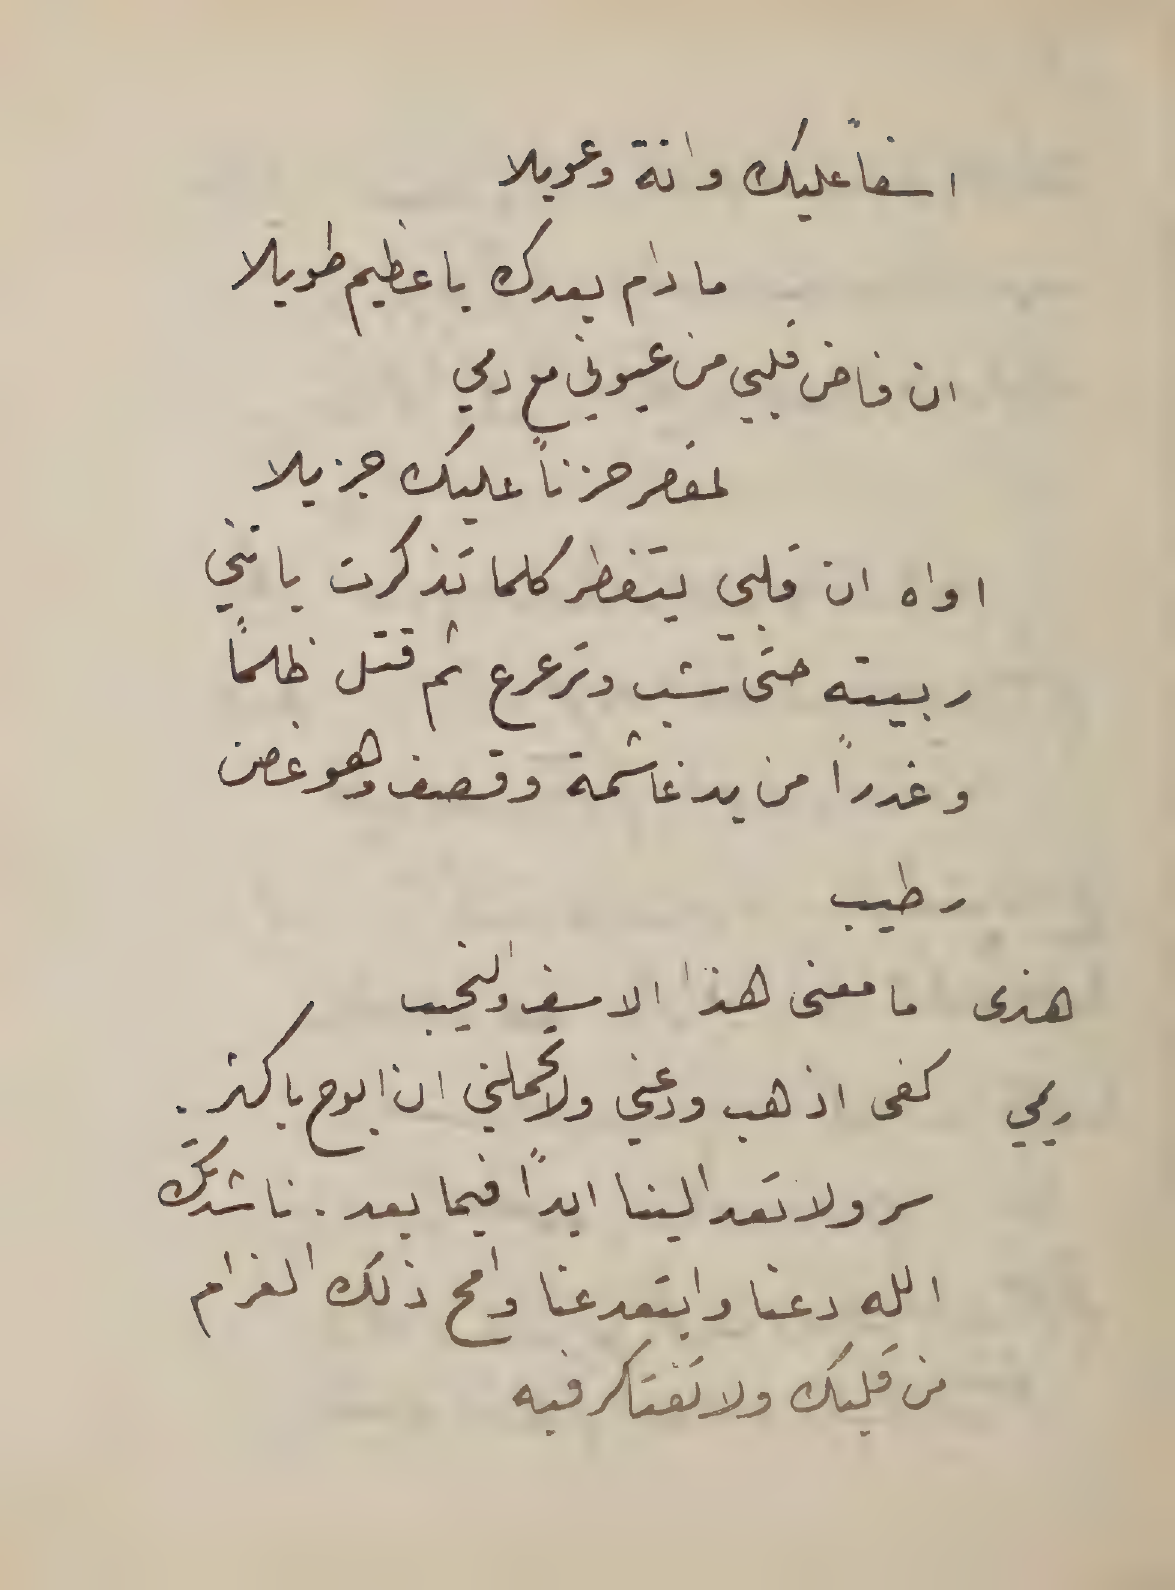 اسفاً عليك وانة وعويلا
ما دام بعدك يا عظيم طويلا
ان فاض قلبي من عيوني مع دمي
لمقصر حزناً عليك جزيلا
اواه ان قلبي يتفطر كلما تذكرت يا بني
ربيته حتى شب وترعرع ثم قتل ظلماً
وغدراً من يد غاشمة وقصف وهو غصن
رطيب
هندى ما معنى هذا الاسف والنحيب
ريمي كفى اذهب ودعني ولا تحملني ان ابوح باكثر .
سر ولا تعد الينا ابداً فيما بعد . ناشدتك
الله دعنا وابتعد عنا وامح ذلك الغرام
من قلبك ولا تفتكر فيه